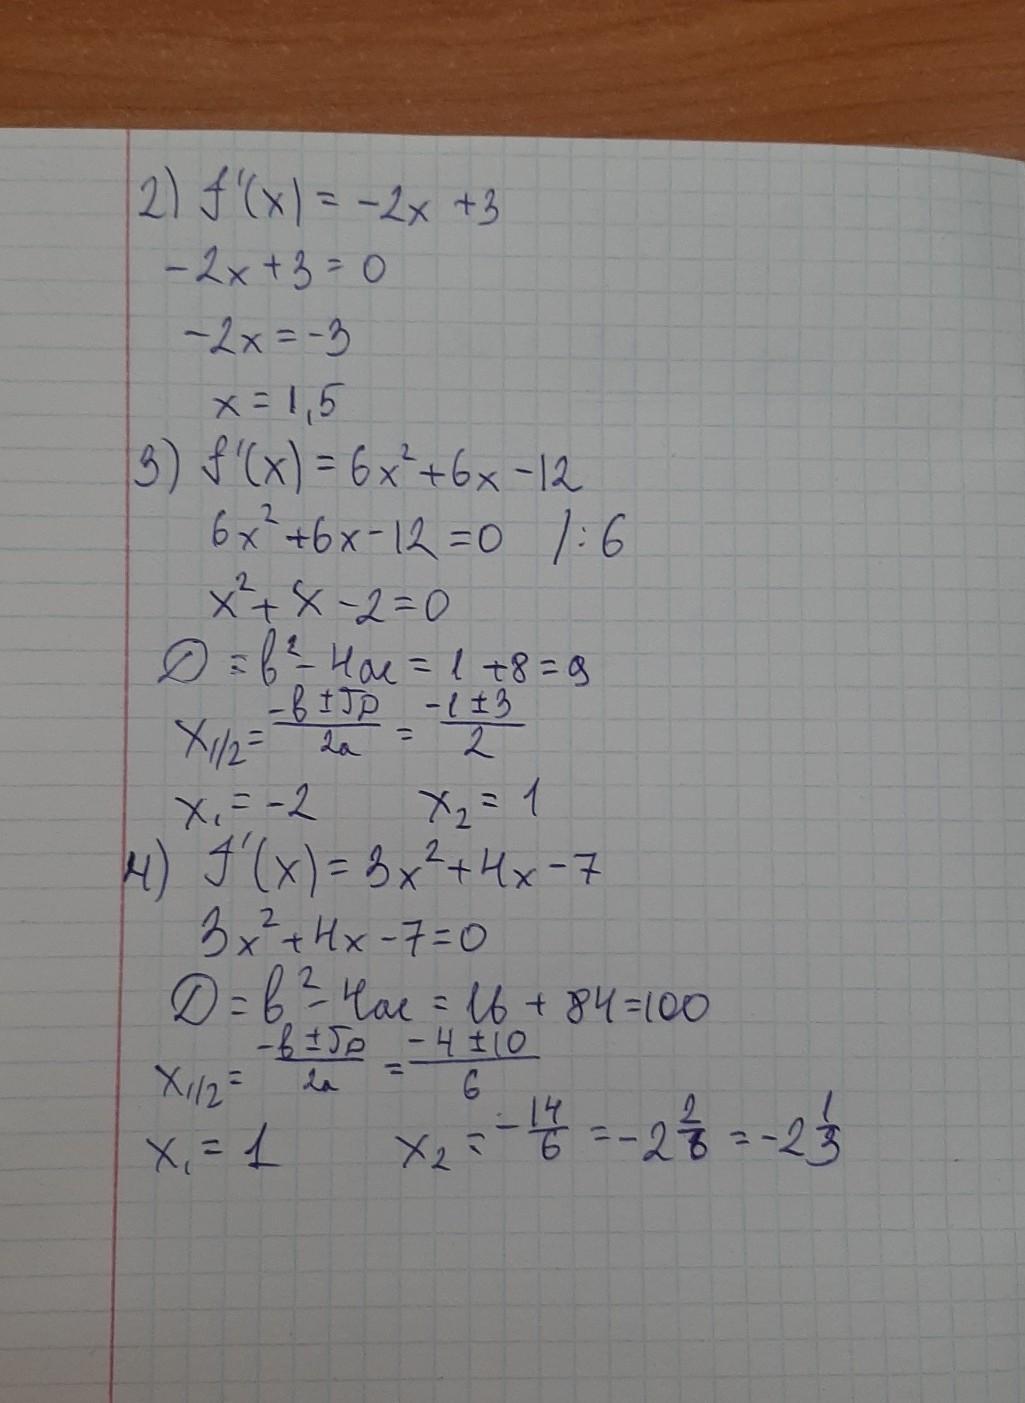 2) f'(x) = -2x +3
-2x+3=0
-2x=-3
x=1,5
3) f'(x)=6x²+6x-12
6x²+6x-12=0 /:6
x²+x-2=0
D=b²-4ac=1+8=9
x₁/₂=(-b±√D)/2a=(-1±3)/2
x₁=-2 x₂=1
4) f'(x)=3x²+4x-7
3x²+4x-7=0
D=b²-4ac=16+84=100
x₁/₂=(-b±√D)/2a=(-4±10)/6
x₁=1 x₂=-14/6=-2 2/6=-2 1/3